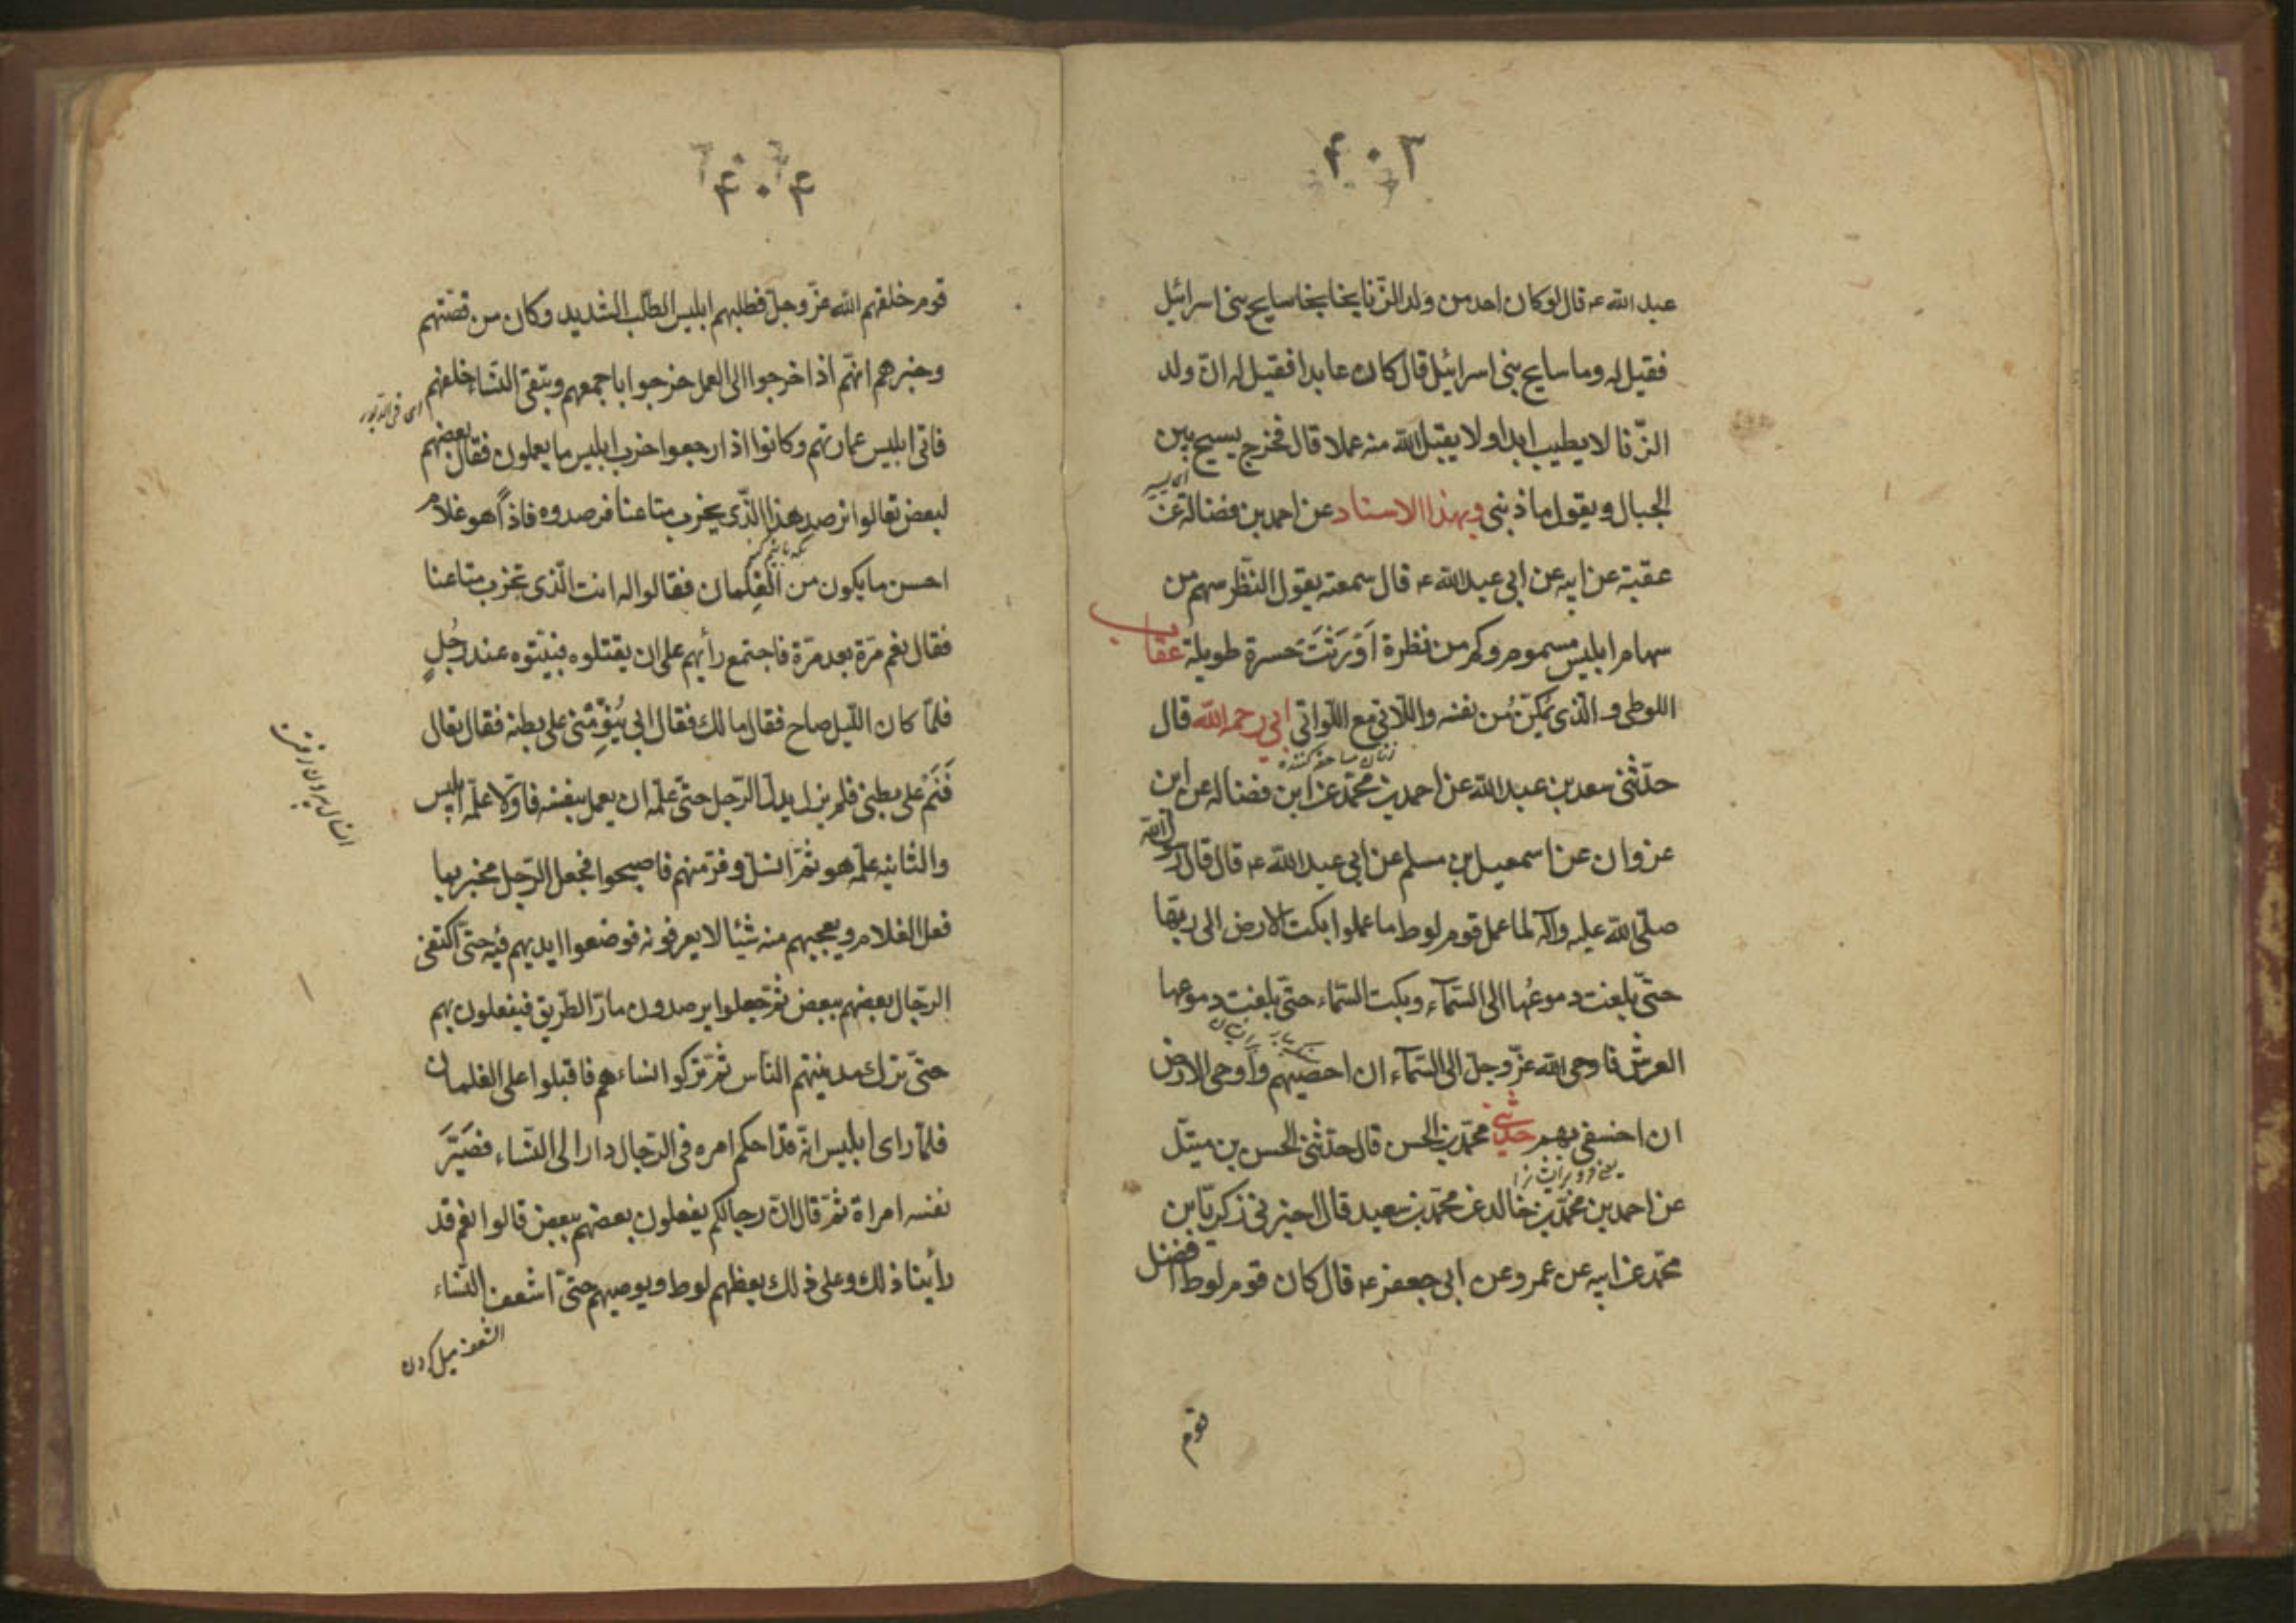 ۴۰۳
عبد الله ع قال لو كان احد من ولد الزّنا نجا نجا سايح بنى اسرائيل
فقيل له وما سايح بنى اسرائيل قال كان عابدا فقيل له انّ ولد
الزّنا لا يطيب ابدا ولا يقبل الله منه عملا قال فخرج يسيح بين
الجبال ويقول ما ذنبى وبهذا الاسناد عن احمد بن فضالة عن
عقبة عن ابيه عن ابى عبد الله ع قال سمعته يقول النّظر سهم من
سهام ابليس مسموم وكم من نظرة اَوْرَثَتْ حسرة طويلة عقاب
اللوطى والّذى يمكّن من نفسه واللّاتى مع اللّواتى ابى رحمه الله قال
زنان مساحقه كننده
حدّثنى سعد بن عبد الله عن احمد بن محمّد عن ابن فضاله عن ابن
غزوان عن اسمعيل بن مسلم عن ابى عبد الله ع قال قال رسول الله
صلّى الله عليه وآله لما عمل قوم لوط ما عملوا بكت الارض الى ربّها
حتّى بلغت دموعُها الى السّمآء وبكت السّماء حتّى بلغت دموعها
العرش فاوحى الله عزّ وجل الى السّمآء ان احصبيهم وأوحى الارض
ان اخسفى بهم حدّثنى محمّد بن الحسن قال حدّثنى الحسن بن ميتّل
عن احمد بن محمّد بن خالد عن محمّد بن سعيد قال اخبرنى زكريّا بن
محمّد عن ابيه عن عمرو عن ابى جعفر ع قال كان قوم لوط افضل
قوم
۴۰۴
قوم خلقهم الله عزّ وجل فطلبهم ابليس الطّلب الشديد وكان من قصّتهم
وخبرهم انّهم اذا خرجوا الى العمل خرجوا باجمعهم ويتقى النّساء خلفهم
فاتى ابليس عمارتهم وكانوا اذا رجعوا خرب ابليس ما يعملون فقال بعضهم
لبعض تعالوا نرصد هذا الّذى يخرب متاعنا فرصدوه فاذا هو غلام
احسن ما يكون من الغِلمان فقالوا له انت الّذى تخرب متاعنا
فقال نعم مَرّة بعد مَرّة فاجتمع رأيهم على ان يقتلوه فبيّتوه عند رَجُلٍ
فلمّا كان اللّيل صاح فقال ما لك فقال ابى يُنَوِّمُنى على بطنه فقال تعال
فَنَمْ على بطنى فلم يزل يدلك الرّجل حتّى علّمه ان يعمل بنفسه فاوّلا علّمه ابليس
والثانيه علّمه هو ثمّ انسلّ وفرّ منهم فاصبحوا فجعل الرّجل يخبر بما
فعل الغلام ويعجبهم منه شيئا لا يعرفونه فوضعوا ايديهم فيه حتّى اكتفى
الرّجال بعضهم ببعض ثمّ جعلوا يرصدون مارّ الطّريق فيفعلون بهم
حتّى ترك مدينتهم النّاس ثمّ تركوا نساءهم فاقبلوا على الغلمان
فلمّا راى ابليس انّه قد احكم امره فى الرّجال دار الى النّساء فصَيَّرَ
نفسه امراة ثمّ قال انّ رجالكم يفعلون بعضهم ببعض قالوا نعم قد
رأينا ذلك وعلى ذلك يعظهم لوط ويوصيهم حتّى اشعف النّساء
الشعف ميل كردن
انسلال بيرون رفتن